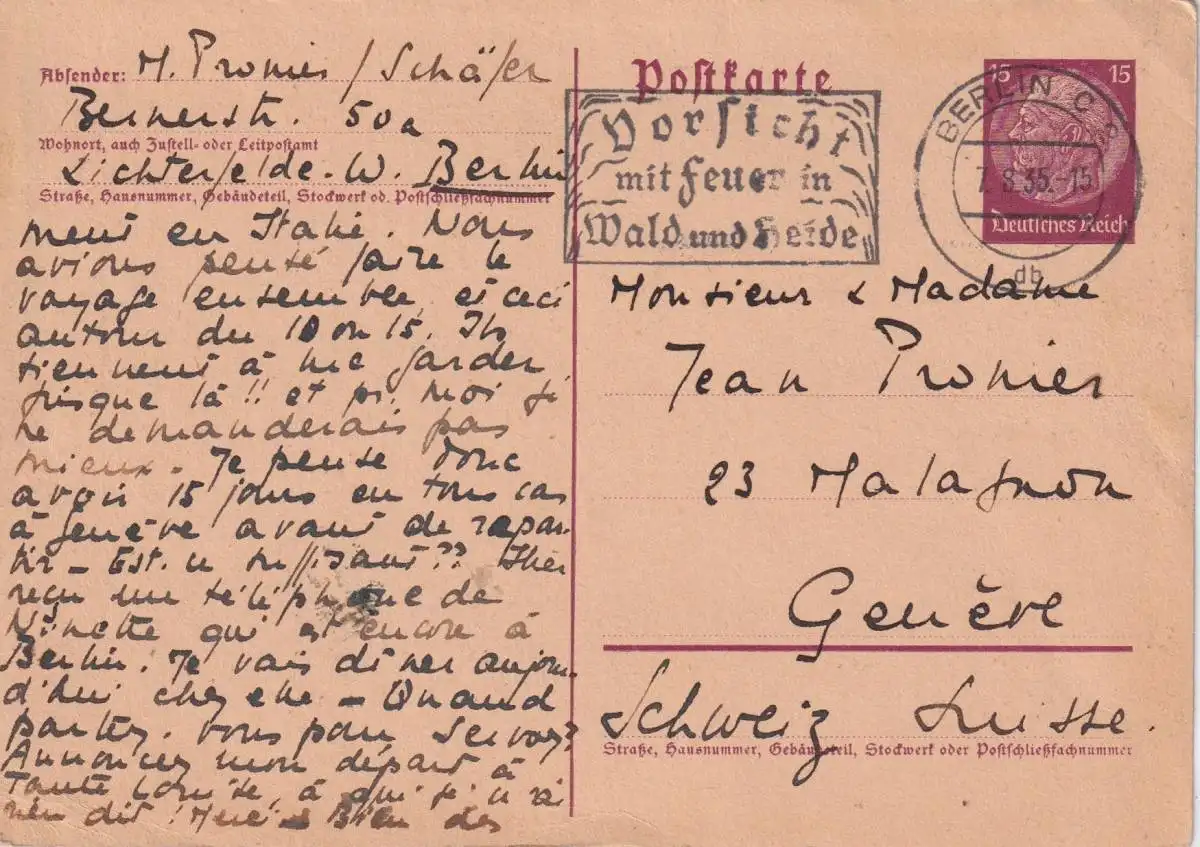 Absender: M. Pronier / Schäfer
Bernerstr. 50a
Wohnort, auch Zustell- oder Leitpostamt
Lichterfelde-W. Berlin
Straße, Hausnummer, Gebäudeteil, Stockwerk od. Postschließfachnummer
ment en Italie. Nous
avions pensé faire le
voyage ensemble, et ceci
autour du 10 ou 15. Ils
tiennent à me garder
jusque là!! et pr. moi je
ne demanderais pas
mieux. Je pense donc
avoir 15 jours en tous cas
à Genève avant de repar-
tir - Est-ce suffisant?? Hier
reçu un téléphone de
Ninette qui est encore à
Berlin. Je vais dîner aujour-
d'hui chez elle - Quand
partez-vous pour Servoz?
Annoncez mon départ à
Tante Louise, à qui je n'ai
rien dit. Merci - Bien des
Postkarte
Vorsicht
mit Feuer in
Wald und Heide
BERLIN C
7.8.35.-15
db
15 15
Deutsches Reich
Monsieur & Madame
Jean Pronier
23 Malagnou
Genève
Schweiz Suisse.
Straße, Hausnummer, Gebäudeteil, Stockwerk oder Postschließfachnummer